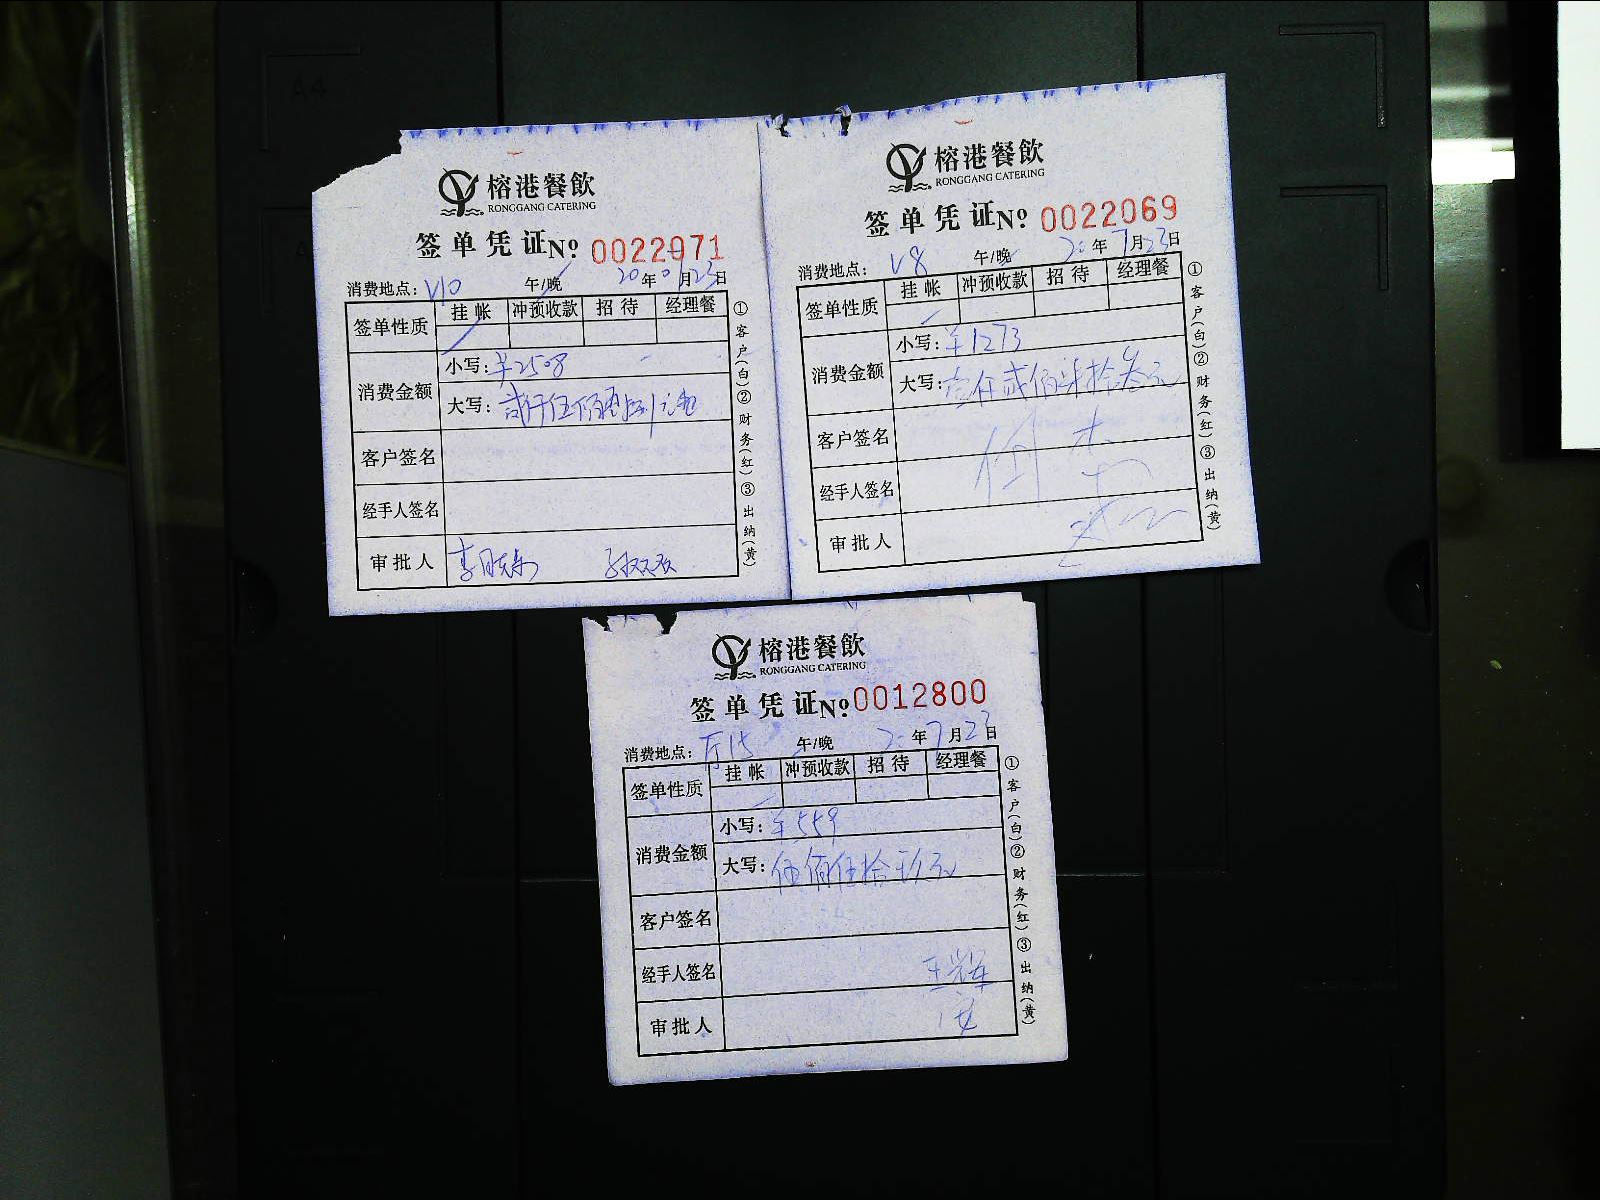 榕港餐飲
RONGGANG CATERING
签单凭证 No 0022071
消费地点: V10 午/晚 20年 月23日
签单性质 挂帐 冲预收款 招待 经理餐
消费金额 小写: ¥2508
大写: 贰仟伍佰
客户签名
经手人签名
审批人
①客户(白)②财务(红)③出纳(黄)
榕港餐飲
RONGGANG CATERING
签单凭证 No 0022069
消费地点: V8 午/晚 20年7月23日
签单性质 挂帐 冲预收款 招待 经理餐
消费金额 小写: ¥1273
大写: 壹仟贰佰柒拾叁元
客户签名
经手人签名
审批人
①客户(白)②财务(红)③出纳(黄)
榕港餐飲
RONGGANG CATERING
签单凭证 No 0012800
消费地点: 厅15 午/晚 20年7月23日
签单性质 挂帐 冲预收款 招待 经理餐
消费金额 小写: ¥559
大写: 伍佰伍拾玖元
客户签名
经手人签名 王辉
审批人
①客户(白)②财务(红)③出纳(黄)